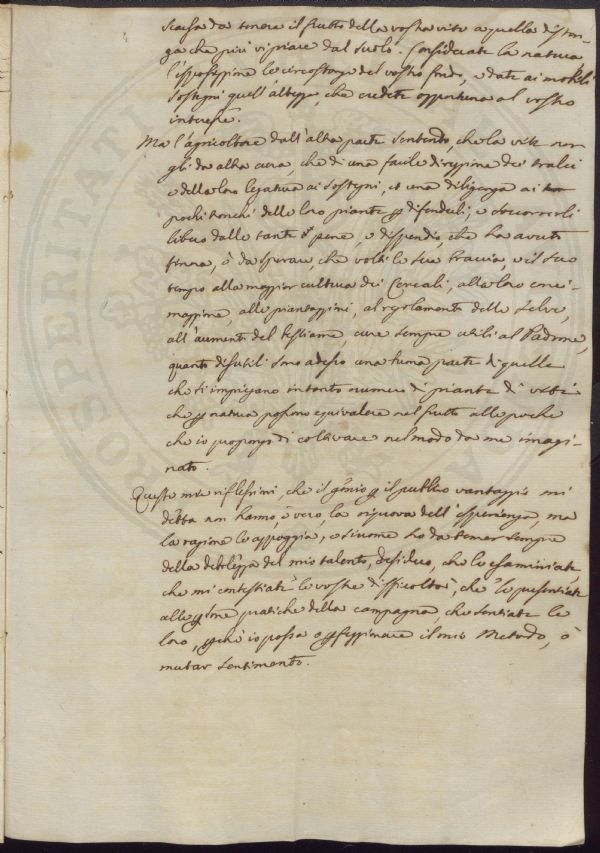 scarsa da tenere il frutto della vostra vite a quella distan-
za che più vi piace dal suolo. Considerate la natura
l'esposizione le circostanze del vostro fondo, e date ai mobili
sostegni quell'altezza, che credete opportuna al vostro
interesse.
Ma l'agricoltore dall'altra parte sentendo, che la vite non
gli dà altra cura, che di una facile direzzione dei tralci
e della loro legatura ai sostegni, et una diligenza ai
pochi tronchi delle loro piante per difenderli, e soccorrerli
libero dalle tante pene, e dispendio, che ha avuto
finora, è da sperare, che volti le sue braccia, e il suo
tempo alla maggior cultura dei Cereali, alla loro conci-
mazzione, alle piantaggioni, al regolamento delle selve,
all'aumento del bestiame, cure sempre utili al Padrone,
quanto disutili sono adesso una buona parte di quelle
che si impiegano intanto numero di piante di viti
che per natura possono equivalere nel frutto alle poche
che io propongo di coltivare nel modo da me imagi-
nato.
Queste mie riflessioni, che il genio per il pubblico vantaggio mi
detta non hanno, è vero la riprova dell'esperienza, ma
la ragione le appoggia, e siccome ho da temer sempre
della debolezza del mio talento, desidero, che le esaminiate,
che mi contestiate le vostre difficoltà, che le presentiate
alle persone pratiche della campagna che sentiate le
loro, perchè io possa o perfezzionare il mio Metodo, ò
mutar sentimento.